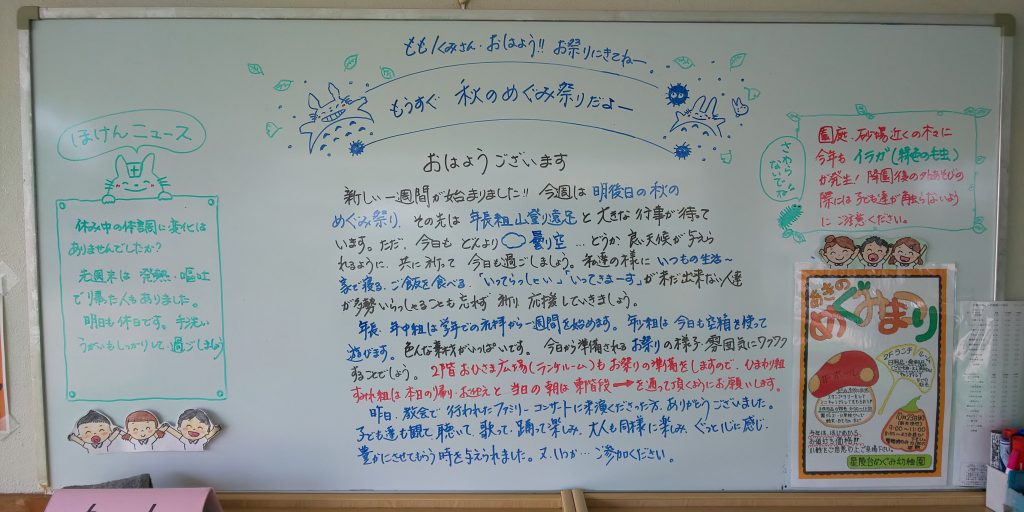 ももくみさん、おはよう!! お祭りにきてねー。
もうすぐ 秋のめぐみ祭りだよー
おはようございます
新しい一週間が始まりました!! 今週は 明後日の秋の
めぐみ祭り、その先は 年長組 山登り遠足 と 大きな行事が待って
います。ただ、今日も どんより 曇り空 … どうか 良い天候が与えら
れるように、共に祈って 今日も過ごしましょう。私達の様に いつもの生活〜
家で寝る、ご飯を食べる、「いってらっしゃい」「いってきまーす」が まだ出来ない人達
が多勢いらっしゃることも忘れず 祈り 応援していきましょう。
年長、年中組は学年での礼拝から一週間を始めます。年少組は 今日も空箱を使って
遊びます。色んな素材がいっぱいです。 今日から準備される お祭りの様子・雰囲気にワクワク
することでしょう。2階 おひさま広場(ランチルーム)も お祭りの準備をしますので、ひまわり組
は本日の帰り・お迎えと 当日の朝は 東階段 → を通って頂くようにお願いします。
昨日、教会で 行われた ファミリーコンサートに 来演くださった方、ありがとうございました。
子ども達も観て、聴いて、歌って、踊って 楽しみ、大人も同様に楽しみ、ぐっと心に感じ、
豊かにさせてもらう 時を与えられました。又、いつか… ご参加ください。
ほけんニュース
休み中の体調に変化は
ありませんでしたか?
先週末は 発熱・嘔吐
で帰った人もありました。
明日も休日です。手洗い
うがいもしっかりして 過ごしましょう
さわらないでネ
園庭、砂場近くの木々に
今年も イラガ(緑色の毛虫)
が発生! 降園後の外あそびの
際には 子ども達が触らないよう
に ご注意ください。
あきの
めぐみまつり
2Fランチルーム
9:00〜11:00
星陵台めぐみ幼稚園